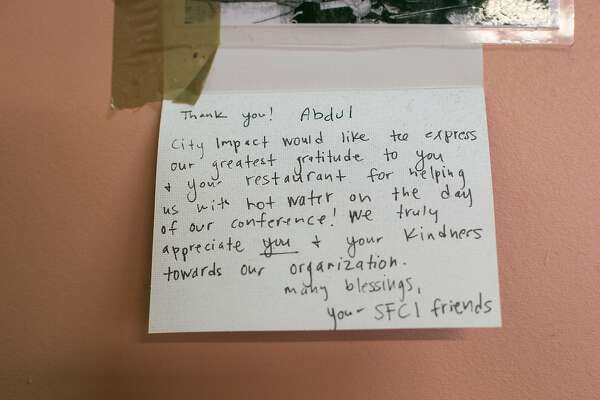 Thank you! Abdul
City Impact would like to express
our greatest gratitude to you
& your restaurant for helping
us with hot water on the day
of our conference! We truly
appreciate you & your kindness
towards our organization.
many blessings,
your SFCI friends